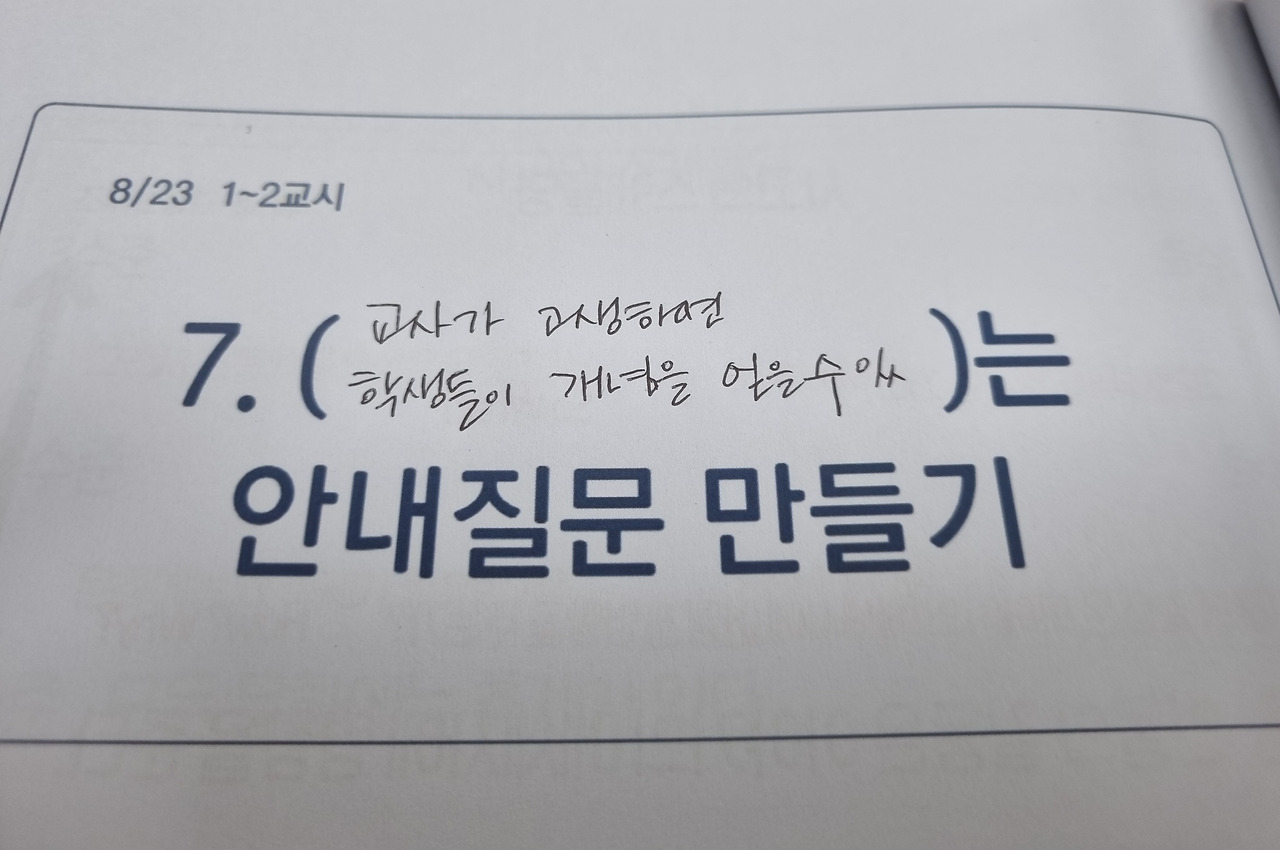 8/23 1~2교시
7. ( 교사가 고생하면
학생들이 개념을 얻을수있 )는
안내질문 만들기